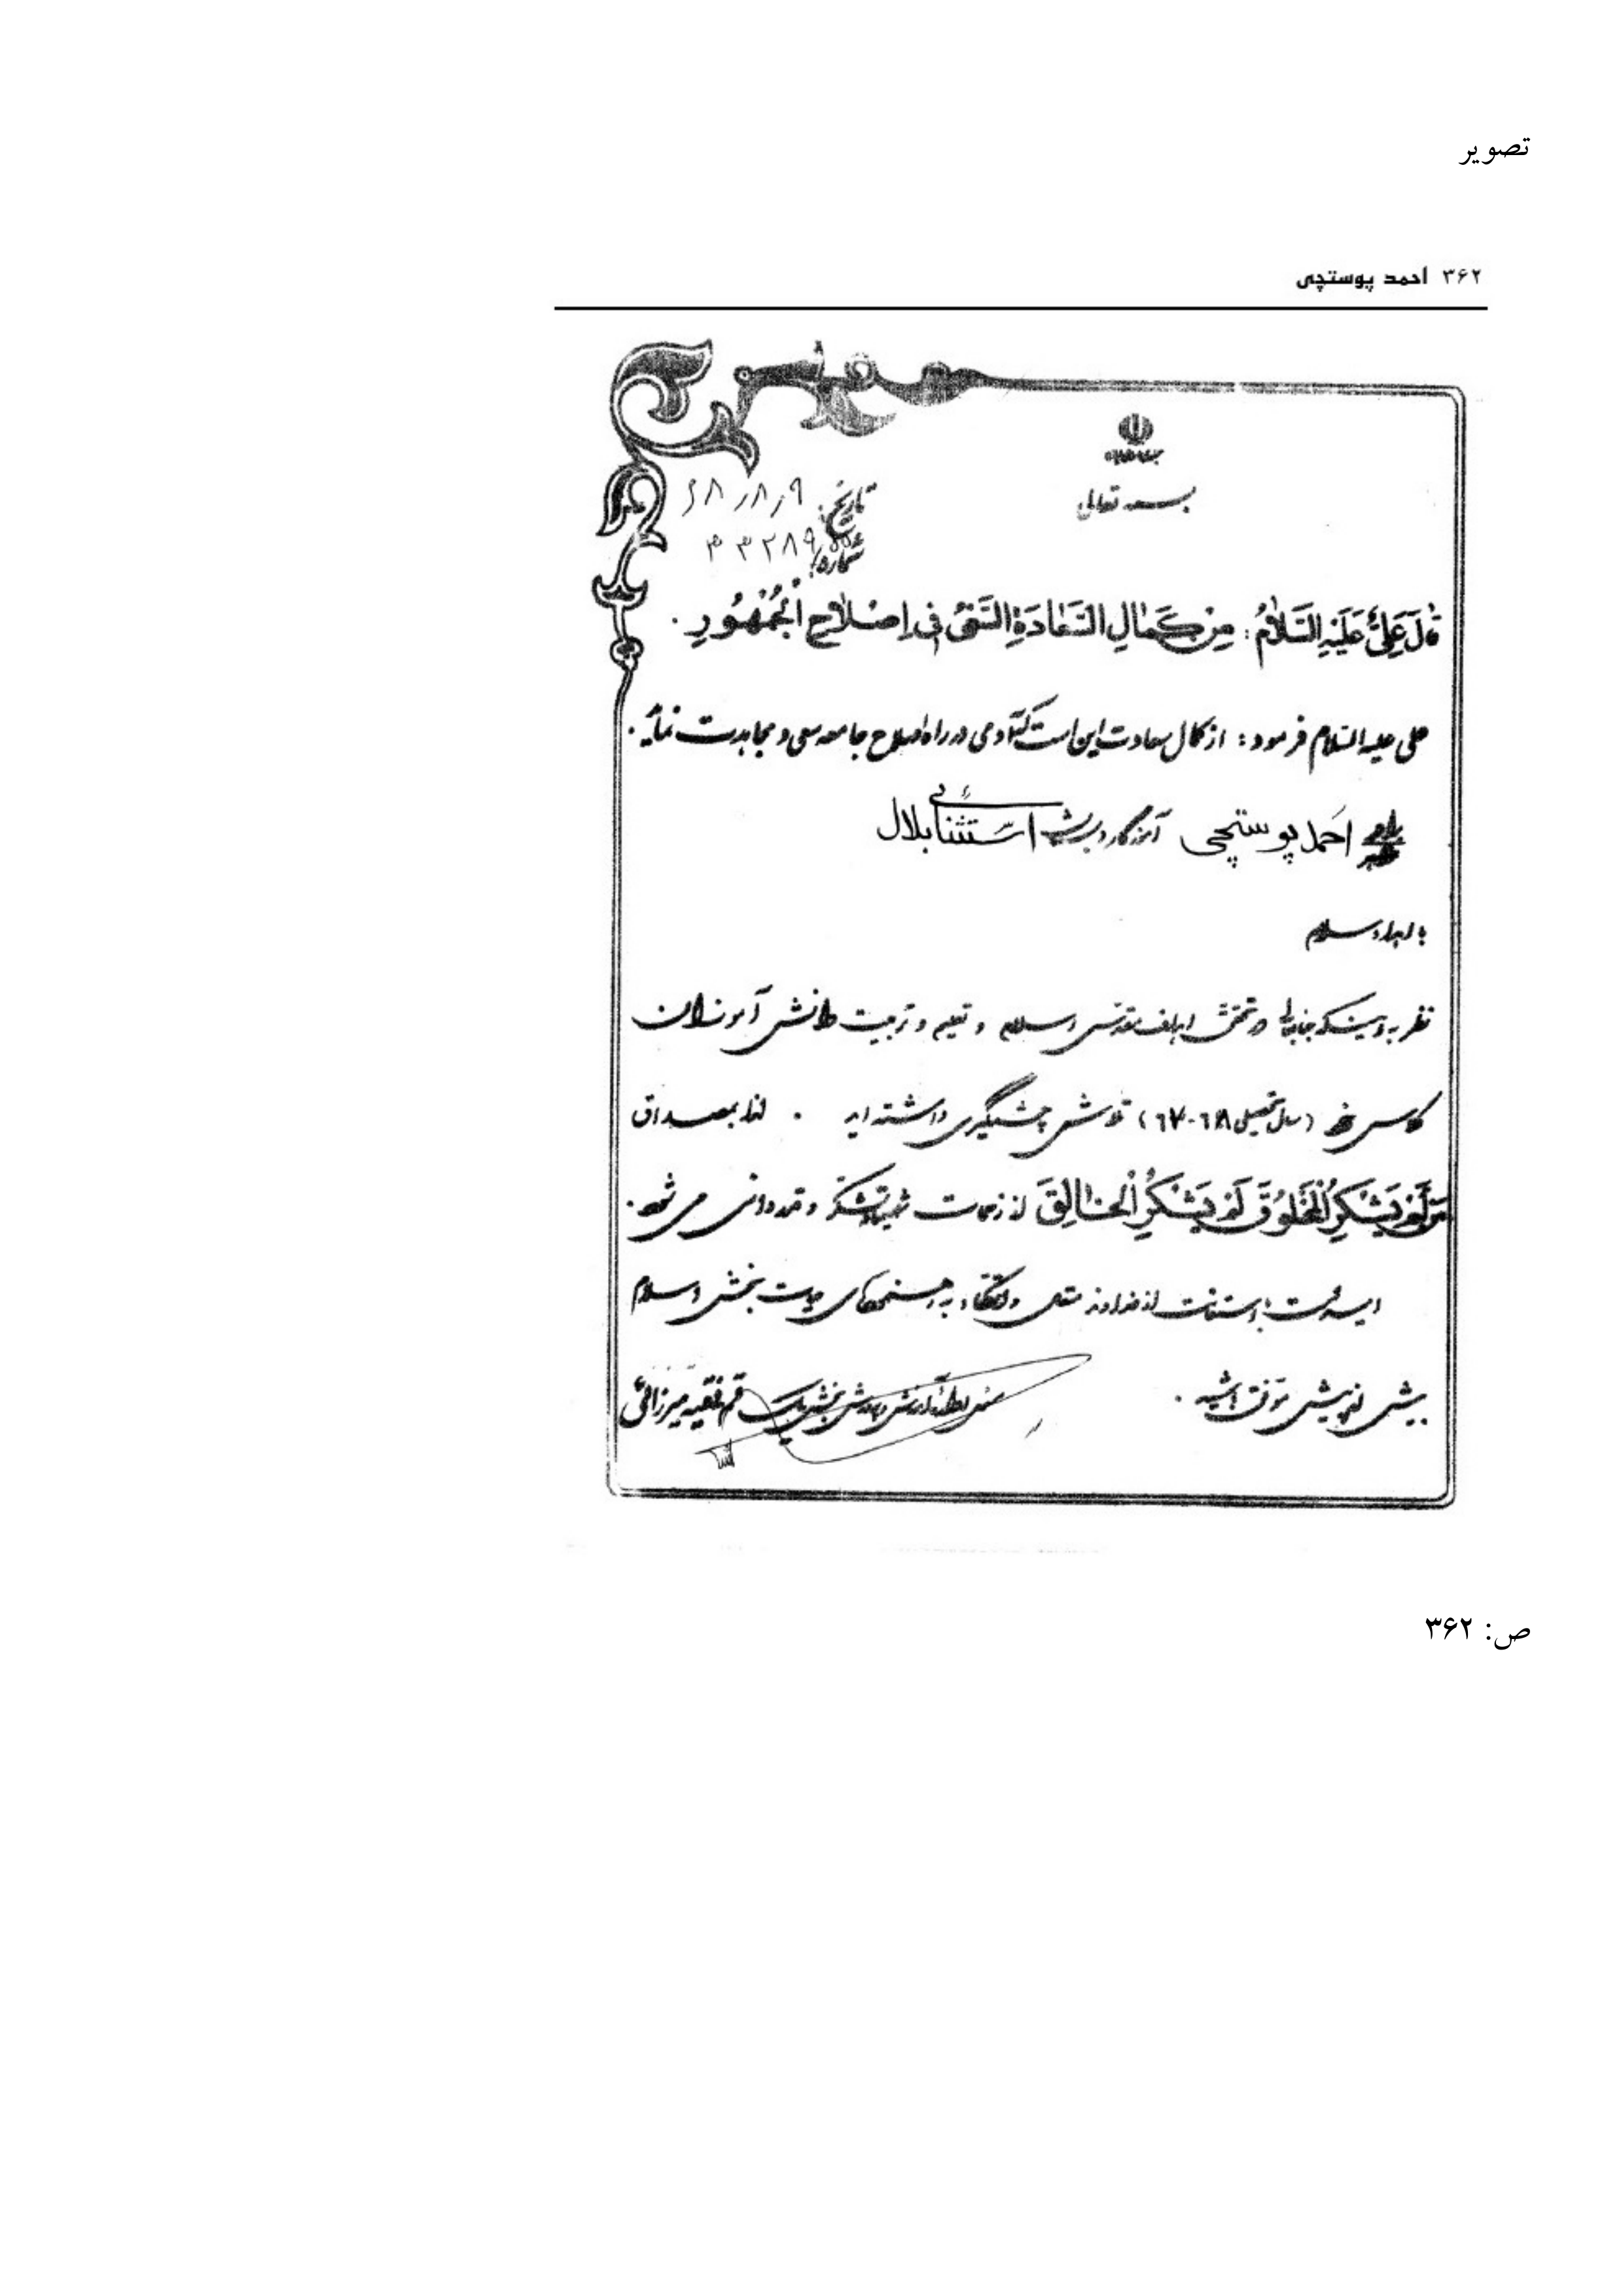 تصویر
۳۶۲ احمد پوستچی
بسمه تعالی
تاریخ: ۶۸/۸/۹
شماره: ۳۳۲۸۹/۵۵
قالَ عَلِیٌّ عَلَیْهِ السَّلامُ: مِنْ کَمالِ السَّعادَةِ السَّعْیُ فی اِصْلاحِ الْجُمْهُورِ.
علی علیه السلام فرمود: از کمال سعادت این است که آدمی در راه اصلاح جامعه سعی و مجاهدت نماید.
برادر احمد پوستچی آموزگار دبستان استثنائی بلال
با اهداء سلام
نظر به اینکه جنابعالی در تحقق اهداف مقدس اسلام و تعلیم و تربیت دانش آموزان
کلاس خود (سال تحصیلی ۶۸-۶۷) تلاش چشمگیری داشته اید. لذا بمصداق
مَنْ لَمْ یَشْکُرِ الْمَخْلُوقَ لَمْ یَشْکُرِ الْخالِقَ از زحمات شما تشکر و قدردانی می شود.
امید است با استعانت از خداوند متعال و اتکاء به رهنمودهای حیات بخش اسلام
بیش از پیش موفق باشید.
آموزش و پرورش بخش یک قم فقیه میرزائی
ص: ۳۶۲